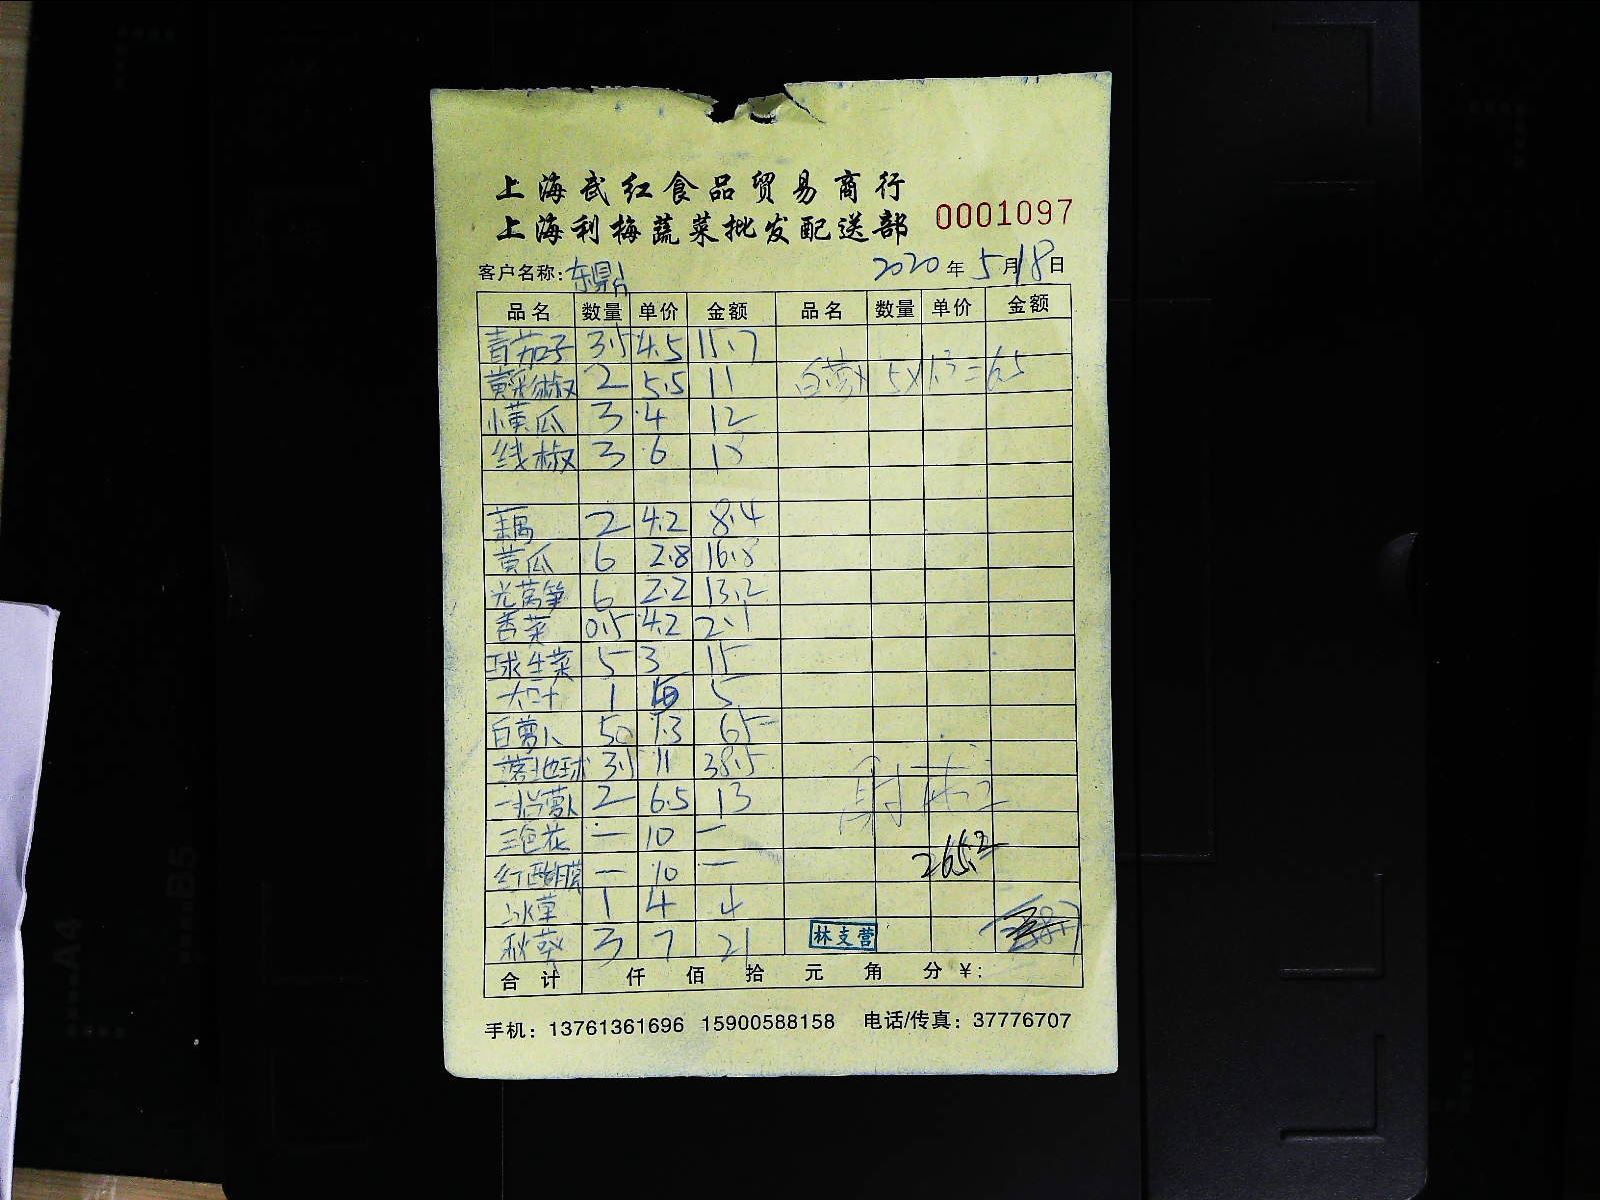 上海武红食品贸易商行
上海利梅蔬菜批发配送部
0001097
客户名称：东鼎 2020年5月18日
品名 数量 单价 金额 品名 数量 单价 金额
青茄子 3.5 4.5 15.7
黄彩椒 2 5.5 11 白萝卜 5×1.3=6.5
小黄瓜 3 4 12
线椒 3 6 18
藕 2 4.2 8.4
黄瓜 6 2.8 16.8
光莴笋 6 2.2 13.2
香菜 0.5 4.2 2.1
球生菜 5 3 15
大叶 1 5 5
白萝卜 50 1.3 65
3.5 11 38.5
萝卜 2 6.5 13
三色花 一 10 一
红 一 10 一
265.2
冰草 1 4 4
秋葵 3 7 21
林支营
合计 仟 佰 拾 元 角 分 ¥：
手机：13761361696 15900588158 电话/传真：37776707